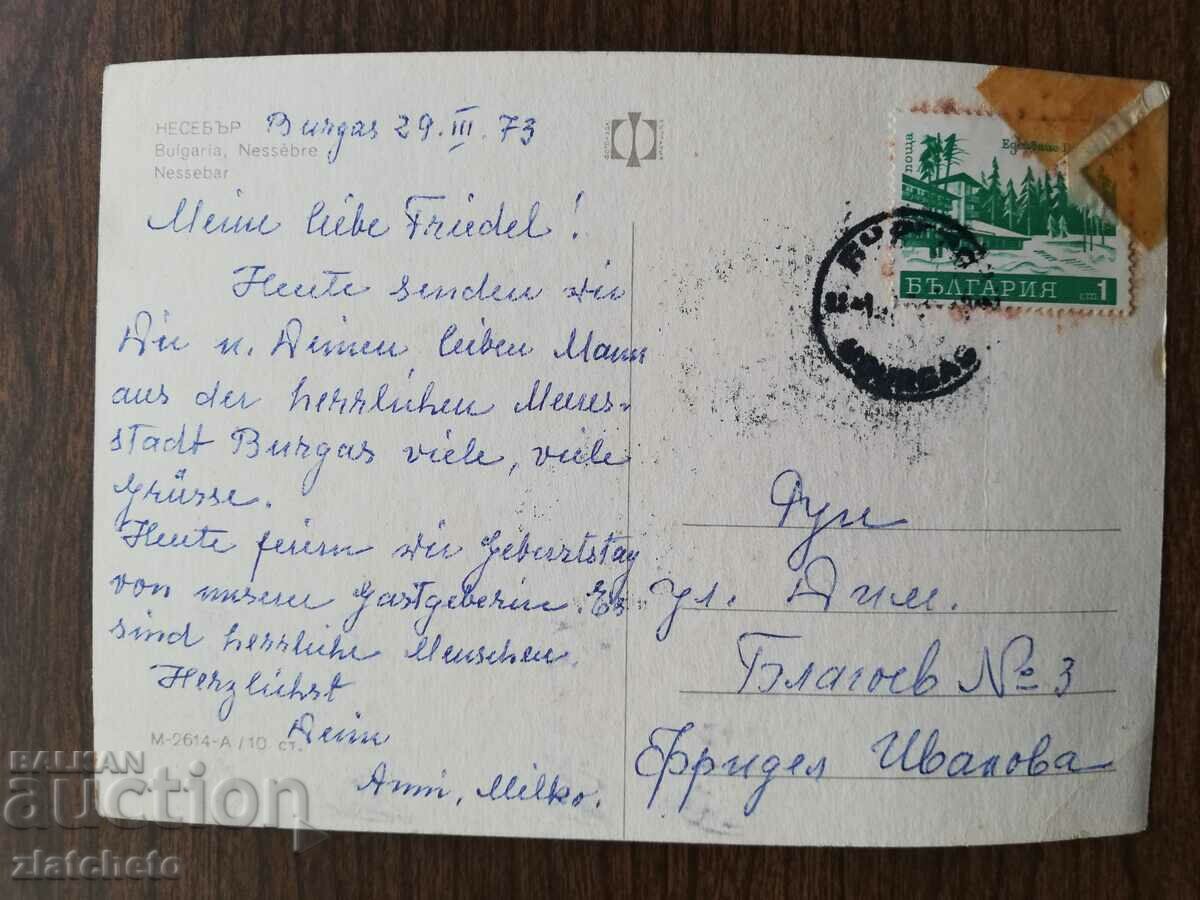 НЕСЕБЪР
Bulgaria, Nessèbre
Nessebar
Burgas 29. III. 73
Meine liebe Friedel!
Heute senden wir
Dir u. Deinen lieben Mann
aus der herrlichen Meeres-
stadt Burgas viele, viele
Grüsse.
Heute feiern wir Geburtstag
von unsern Gastgeberin. Es
sind herrliche Menschen.
Herzlichst
Deine
Anni, Milko.
М-2614-А / 10. ст.
поща
БЪЛГАРИЯ ст 1
БУРГАС
BOURGAS
ул. Дим.
Благоев № 3
Фридел Иванова
BALKAN
auction
zlatcheto